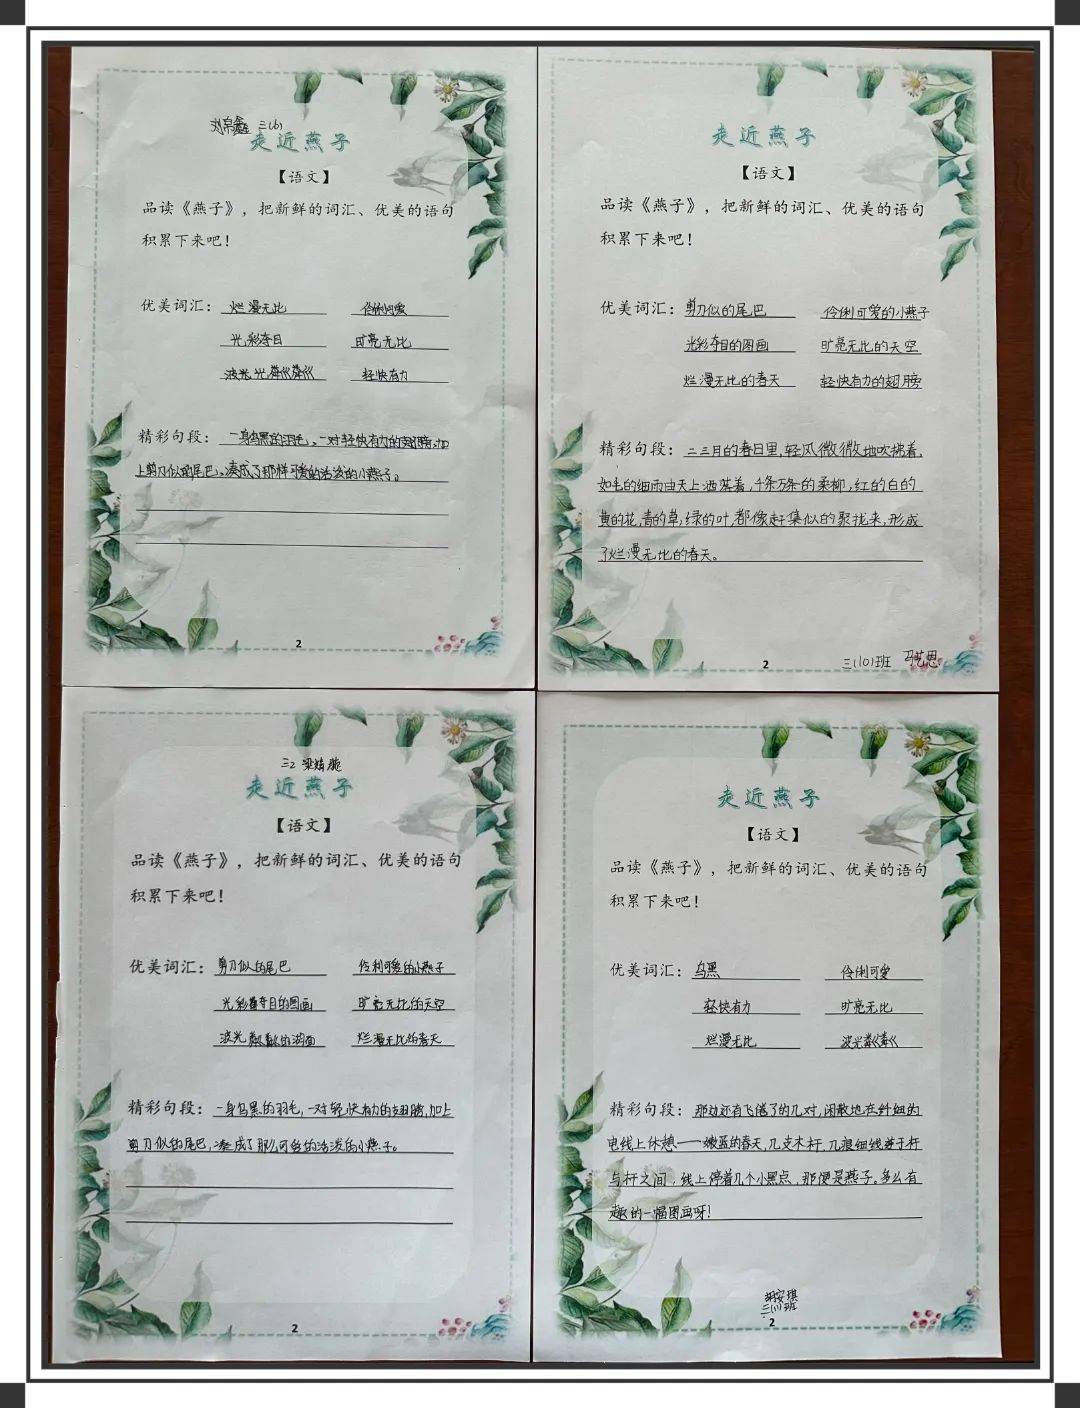 三(6)
走近燕子
【语文】
品读《燕子》，把新鲜的词汇、优美的语句
积累下来吧！
优美词汇： 烂漫无比 伶俐可爱
光彩夺目 旷亮无比
波光粼粼 轻快有力
精彩句段： 一身乌黑的羽毛，一对轻快有力的翅膀，加
上剪刀似的尾巴，凑成了那样可爱的活泼的小燕子。
2
走近燕子
【语文】
品读《燕子》，把新鲜的词汇、优美的语句
积累下来吧！
优美词汇： 剪刀似的尾巴 伶俐可爱的小燕子
光彩夺目的图画 旷亮无比的天空
烂漫无比的春天 轻快有力的翅膀
精彩句段： 二三月的春日里，轻风微微地吹拂着，
如毛的细雨由天上洒落着，千条万条的柔柳，红的白的
黄的花，青的草，绿的叶，都像赶集似的聚拢来，形成
了烂漫无比的春天。
2
三(10)班 马艺思
三2 梁婧
走近燕子
【语文】
品读《燕子》，把新鲜的词汇、优美的语句
积累下来吧！
优美词汇： 剪刀似的尾巴 伶利可爱的小燕子
光彩夺目的图画 旷亮无比的天空
波光粼粼的湖面 烂漫无比的春天
精彩句段： 一身乌黑的羽毛，一对轻快有力的翅膀，加上
剪刀似的尾巴，凑成了那么可爱的活泼的小燕子。
2
走近燕子
【语文】
品读《燕子》，把新鲜的词汇、优美的语句
积累下来吧！
优美词汇： 乌黑 伶俐可爱
轻快有力 旷亮无比
烂漫无比 波光粼粼
精彩句段： 那边还有飞倦了的几对，闲散地在纤细的
电线上休憩——嫩蓝的春天，几支木杆，几痕细线连于杆
与杆之间，线上停着几个小黑点，那便是燕子。多么有
趣的一幅图画呀！
胡安琪
三(1)班
2